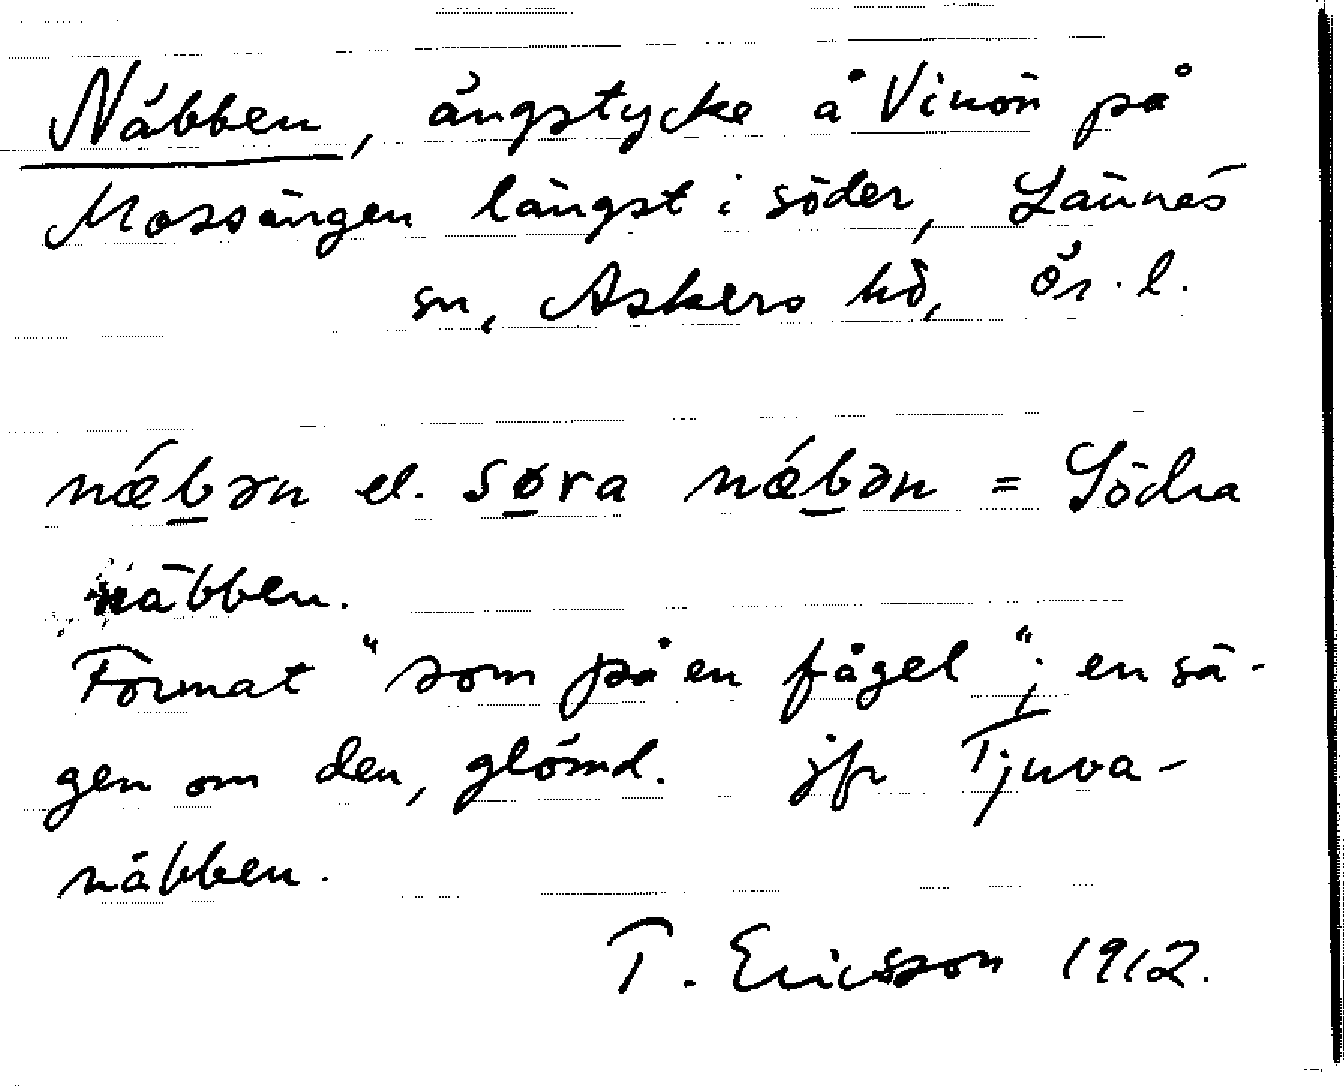 Näbben, ängstycke å Vinön på
Mossängen längst i söder, Lännäs
sn, Askers hd, Ör. l.
nǽb̲ən el. sø̲ra nǽb̲ən = Södra
näbben.
Format "som på en fågel"; en sä-
gen om den, glömd. jfr Tjuva-
näbben.
T. Ericsson 1912.